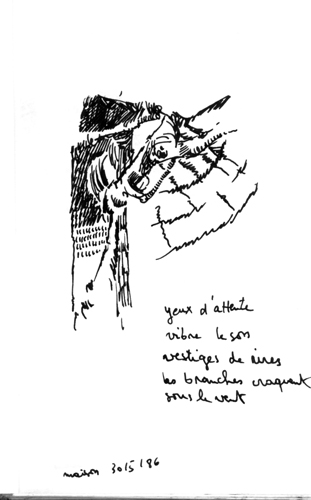 yeux d'attente
vibre le son
vestiges de rires
les branches craquent
sous le vent
maison 30/5/86